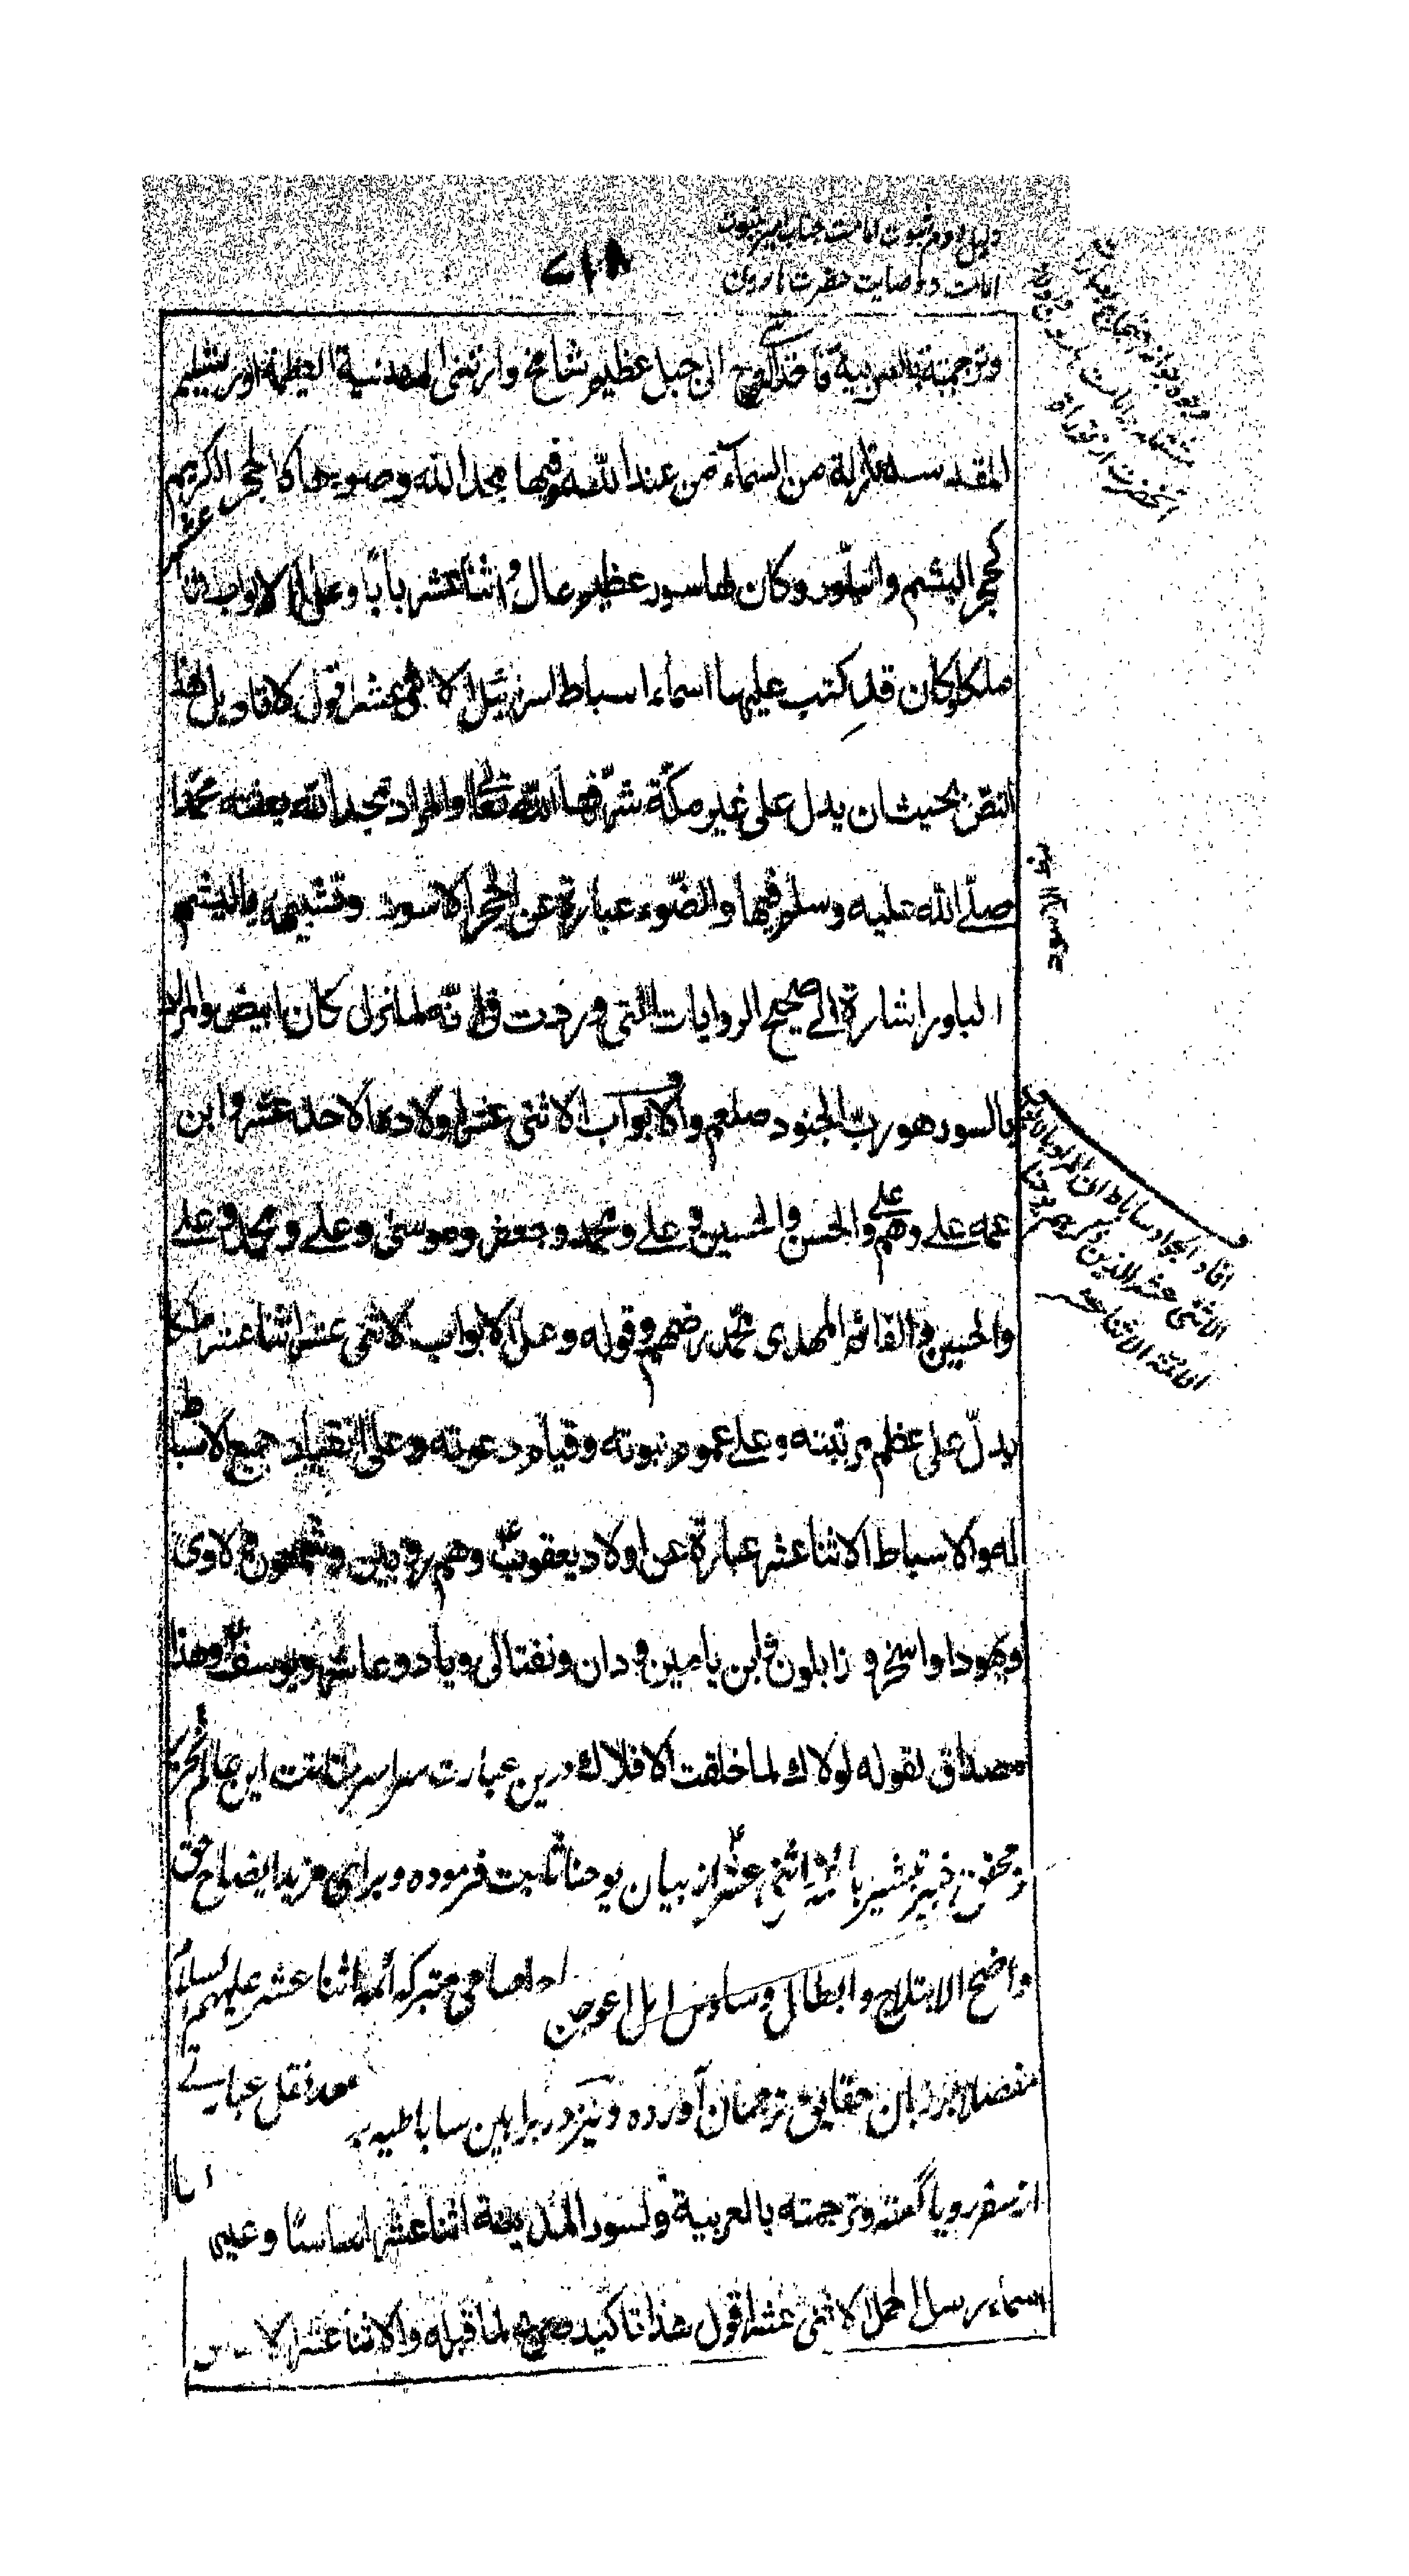 دلیل دوم ثبوت امامت جناب امیر بثبوت
۷۱۸
امامت و وصایت حضرت هارون
وترجمته بالعربية فاخذني الروح الى جبل عظيم شامخ وارتنى المدينة العظيمة اورشليم
المقدسة نازلة من السماء من عند الله وفيها مجد الله وضوءها كالحجر الكريم
كحجر اليشم والبلور وكان لها سور عظيم عال واثنا عشر بابًا وعلى الابواب اثنا عشر
ملكا وكان قد كتب عليها اسماء اسباط اسرائيل الاثنى عشر اقول لا تاويل لهذا
النصّ بحيث ان يدل على غير مكّة شرّفها الله تعالى والمراد بمجد الله بعثه محمّدا
صلّى الله عليه وسلم فيها والضّوء عبارة عن الحجر الاسود وتشبيهه باليشم
البلور اشارة الى صحيح الروايات التى وردت فى انّه لما نزل كان ابيض والمراد
بالسور هو ربّ الجنود صلعم والابواب الاثنى عشر اولاده الاحد عشر وابن
عمه على وهم على والحسن والحسين وعلى ومحمد وجعفر وموسى وعلى ومحمد وعلى
والحسين والقائم المهدى محمّد رضهم وقوله وعلى الابواب الاثنى عشر اثنا عشر ملكا
يدلّ على عظم مرتبته وعلى عموم نبوته وقيام دعوته وعلى انقياد جميع الاسباط
له والاسباط الاثنا عشر عبارة عن اولاد يعقوبؑ وهم روبين وشمعون ولاوى
ويهودا واسخر و زابلون وابن يامين ودان ونفتالى وياد وعاشر ويوسفؑ وهذا
مصداق لقوله لولاك لما خلقت الافلاك درین عبارت سراسر متانت این عالم نحریر
و محقق خبیر تبشیر بائمۀ اثنی عشرؑ از بیان یوحنا ثابت فرموده و برای مزید ایضاح حق
واضح الابتلاج و ابطال وساوس اهل اعوجاج اسامی متبرکه ائمه اثنا عشر علیهم السلام
مفصلاً بر زبان حقایق ترجمان آورده و نیز در براهین ساباطیه بعد نقل عبارتے
از سفر رویا گفته وترجمته بالعربية ولسور المدينة اثنا عشر اساسًا وعليها
اسماء رسل الحمل الاثنى عشر اقول هذا تاكيد صريح لما قبله والاثنا عشر الاساس
افاد الجواد ساباط ان المراد بالابواب
الاثنى عشر الذين ذكرهم يوحنا
الائمة الاثنا عشر